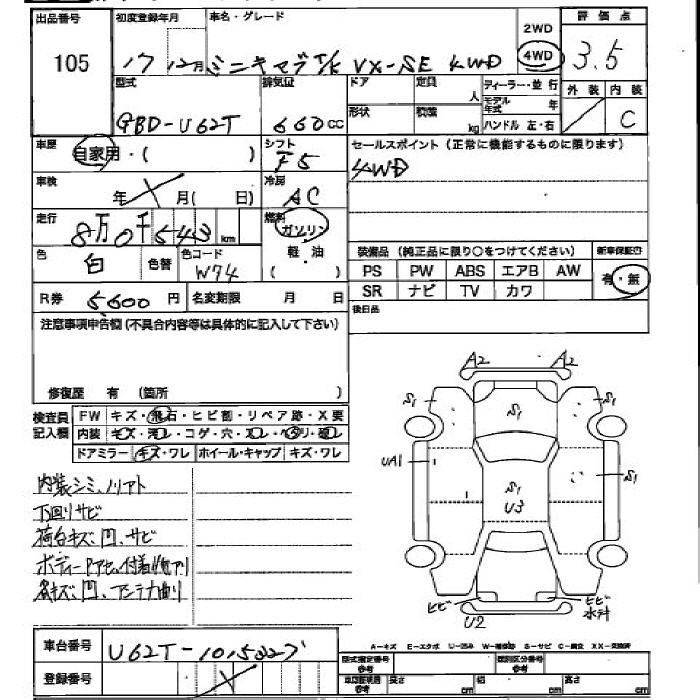 出品番号 初度登録年月 車名・グレード 2WD 評価点
105 17 12月 ミニキャブT/K VX-SE 4WD 4WD 3.5
型式 排気量 ドア 定員 人 ディーラー・並行 外装 内装
形状 積載 kg モデル年式 年
GBD-U62T 660cc ハンドル 左・右 C
車歴 自家用・( ) シフト F5 セールスポイント(正常に機能するものに限ります)
車検 年 月( 日) 冷房 AC 4WD
走行 8万0千543km 燃料 ガソリン
色 白 色替 色コード W74 軽油 ( )
装備品(純正品に限り○をつけてください) 新車保証書
PS PW ABS エアB AW 有・無
SR ナビ TV カワ
R券 5,600円 名変期限 月 日
後日品
注意事項申告欄(不具合内容等は具体的に記入して下さい)
修復歴 有 (箇所 )
検査員記入欄 FW キズ・飛石・ヒビ割・リペア跡・X要
内装 キズ・汚レ・コゲ・穴・スレ・ヘタリ・
ドアミラー キズ・ワレ ホイール・キャップ キズ・ワレ
A2 A2
S1 S1 S1
UA1 S1
S1
U3
ヒビ ヒビ
U2
内装シミ、ノリアト
下回リサビ
荷台キズ、凹、サビ
ボディー
キズ、凹、アンテナ曲り
車台番号 U62T-
登録番号
A-キズ E-エクボ U-凹み W-補修跡 S-サビ C-腐食 XX-交換済
型式指定番号 類別区分番号
長さ cm 幅 cm 高さ cm